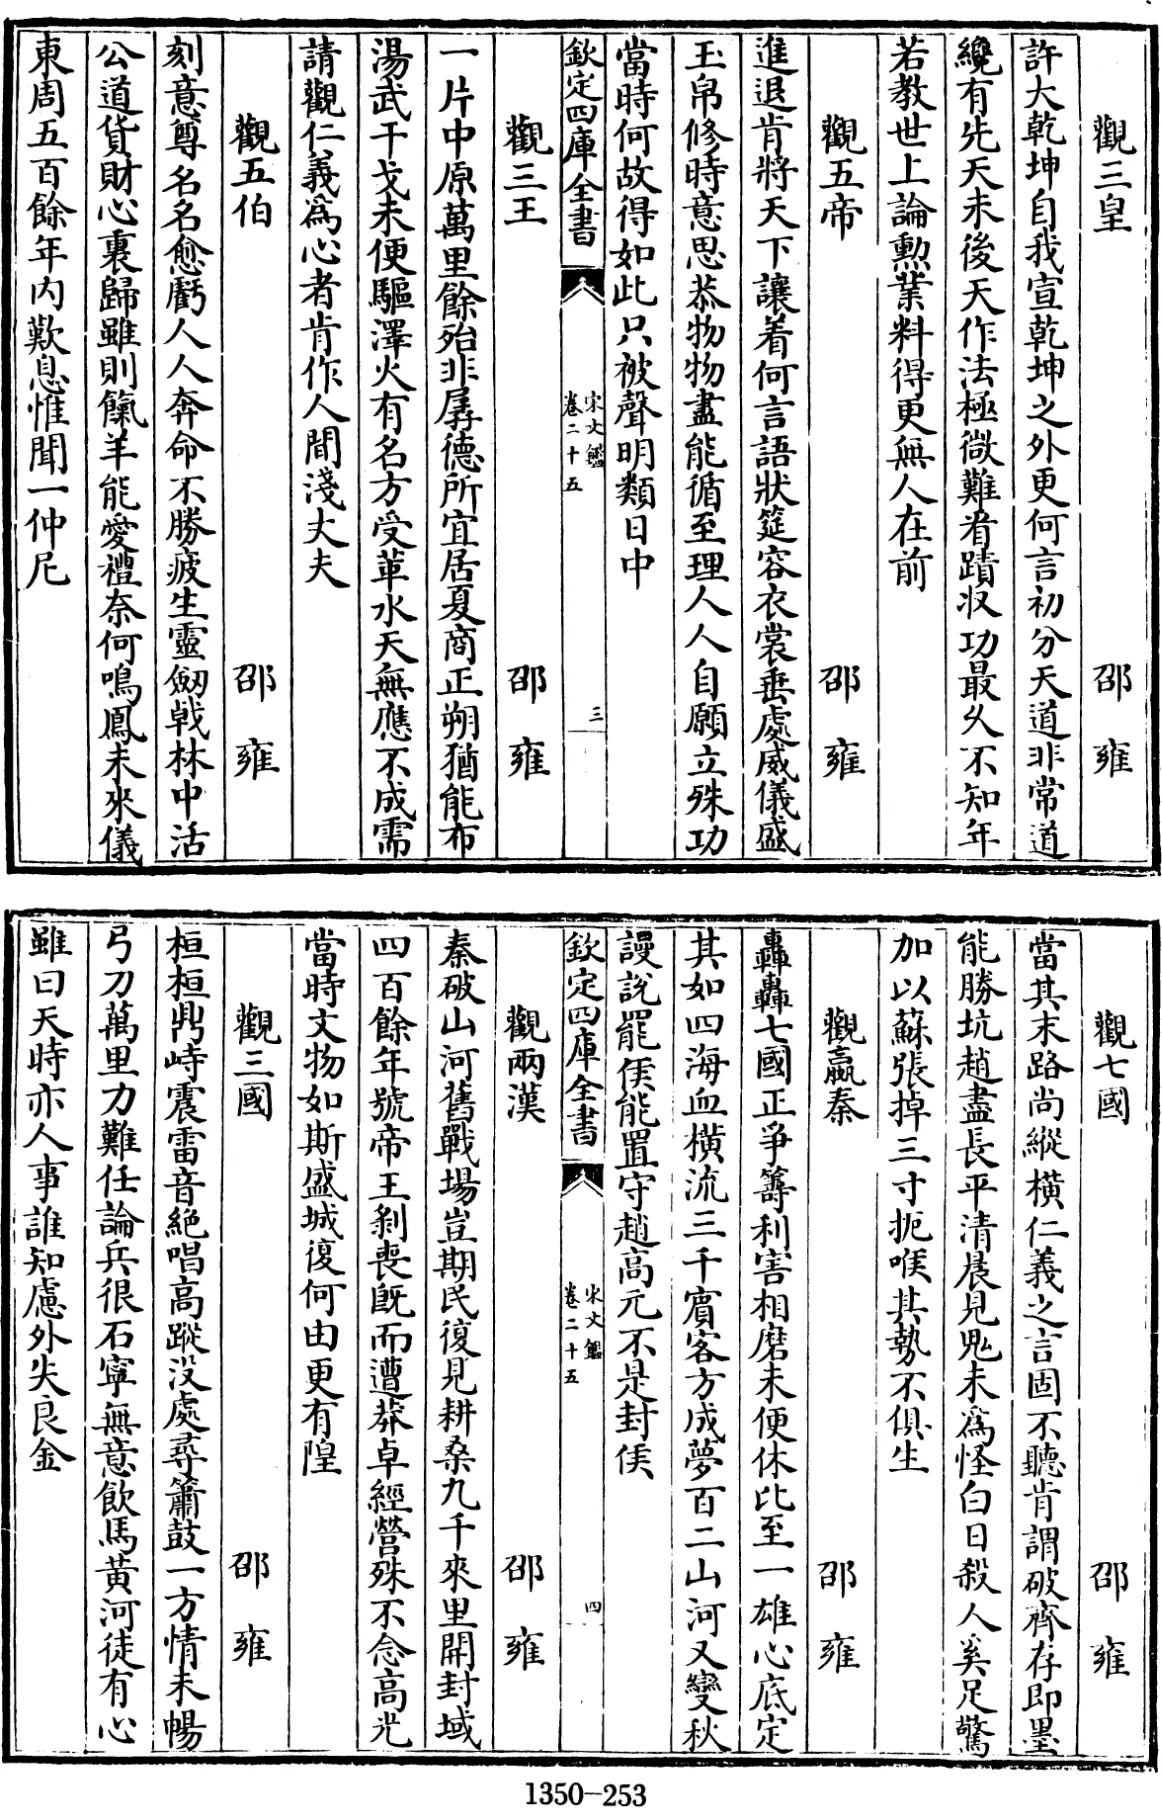 觀三皇　邵雍
許大乾坤自我宣乾坤之外更何言初分天道非常道
纔有先天未後天作法極微難看蹟收功最乆不知年
若教世上論勲業料得更無人在前
觀五帝　邵雍
進退肯將天下讓着何言語狀筵容衣裳垂處威儀盛
玉帛修時意思恭物物盡能循至理人人自願立殊功
當時何故得如此只被聲明類日中
欽定四庫全書　宋文鑑卷二十五　三
觀三王　邵雍
一片中原萬里餘殆非孱德所宜居夏商正朔猶能布
湯武干戈未便驅澤火有名方受革水天無應不成需
請觀仁義爲心者肯作人間淺丈夫
觀五伯　邵雍
刻意尊名名愈虧人人奔命不勝疲生靈劒戟林中活
公道貨財心裏歸雖則餼羊能愛禮奈何鳴鳳未來儀
東周五百餘年内歎息惟聞一仲尼
觀七國　邵雍
當其末路尚縱橫仁義之言固不聽肯謂破齊存即墨
能勝坑趙盡長平清晨見鬼未爲怪白日殺人奚足驚
加以蘇張掉三寸扼喉其勢不俱生
觀嬴秦　邵雍
轟轟七國正爭籌利害相磨未便休比至一雄心底定
其如四海血橫流三千賔客方成夢百二山河又變秋
謾說罷侯能置守趙高元不是封侯
欽定四庫全書　宋文鑑卷二十五　四
觀兩漢　邵雍
秦破山河舊戰場豈期民復見耕桑九千來里開封域
四百餘年號帝王剝喪既而遭莽卓經營殊不念高光
當時文物如斯盛城復何由更有隍
觀三國　邵雍
桓桓鼎峙震雷音絶唱高蹤没處尋簫鼓一方情未暢
弓刀萬里力難任論兵很石寧無意飲馬黄河徒有心
雖曰天時亦人事誰知慮外失良金
1350-253